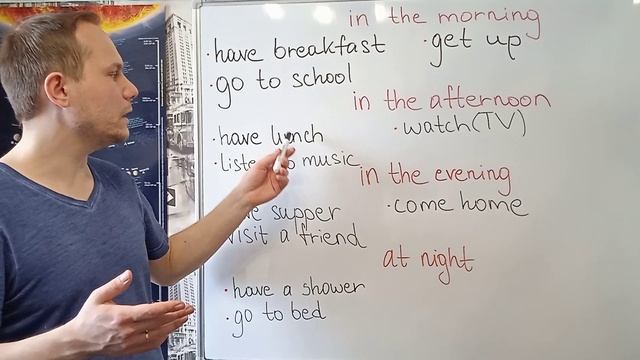 in the morning
·have breakfast ·get up
·go to school
in the afternoon
·have lunch ·watch(TV)
·listen to music
in the evening
have supper ·come home
visit a friend
at night
·have a shower
·go to bed